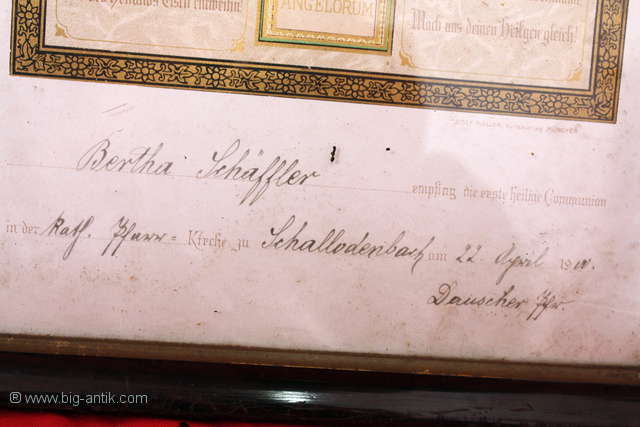 ANGELORUM
Mach uns deinen Heilgen gleich!
Bertha Schäffler empfing die erste heilige Communion
in der kath. Pfarr= Kirche zu Schallodenbach am 22 April 19
Dauscher Pfr.
® www.big-antik.com